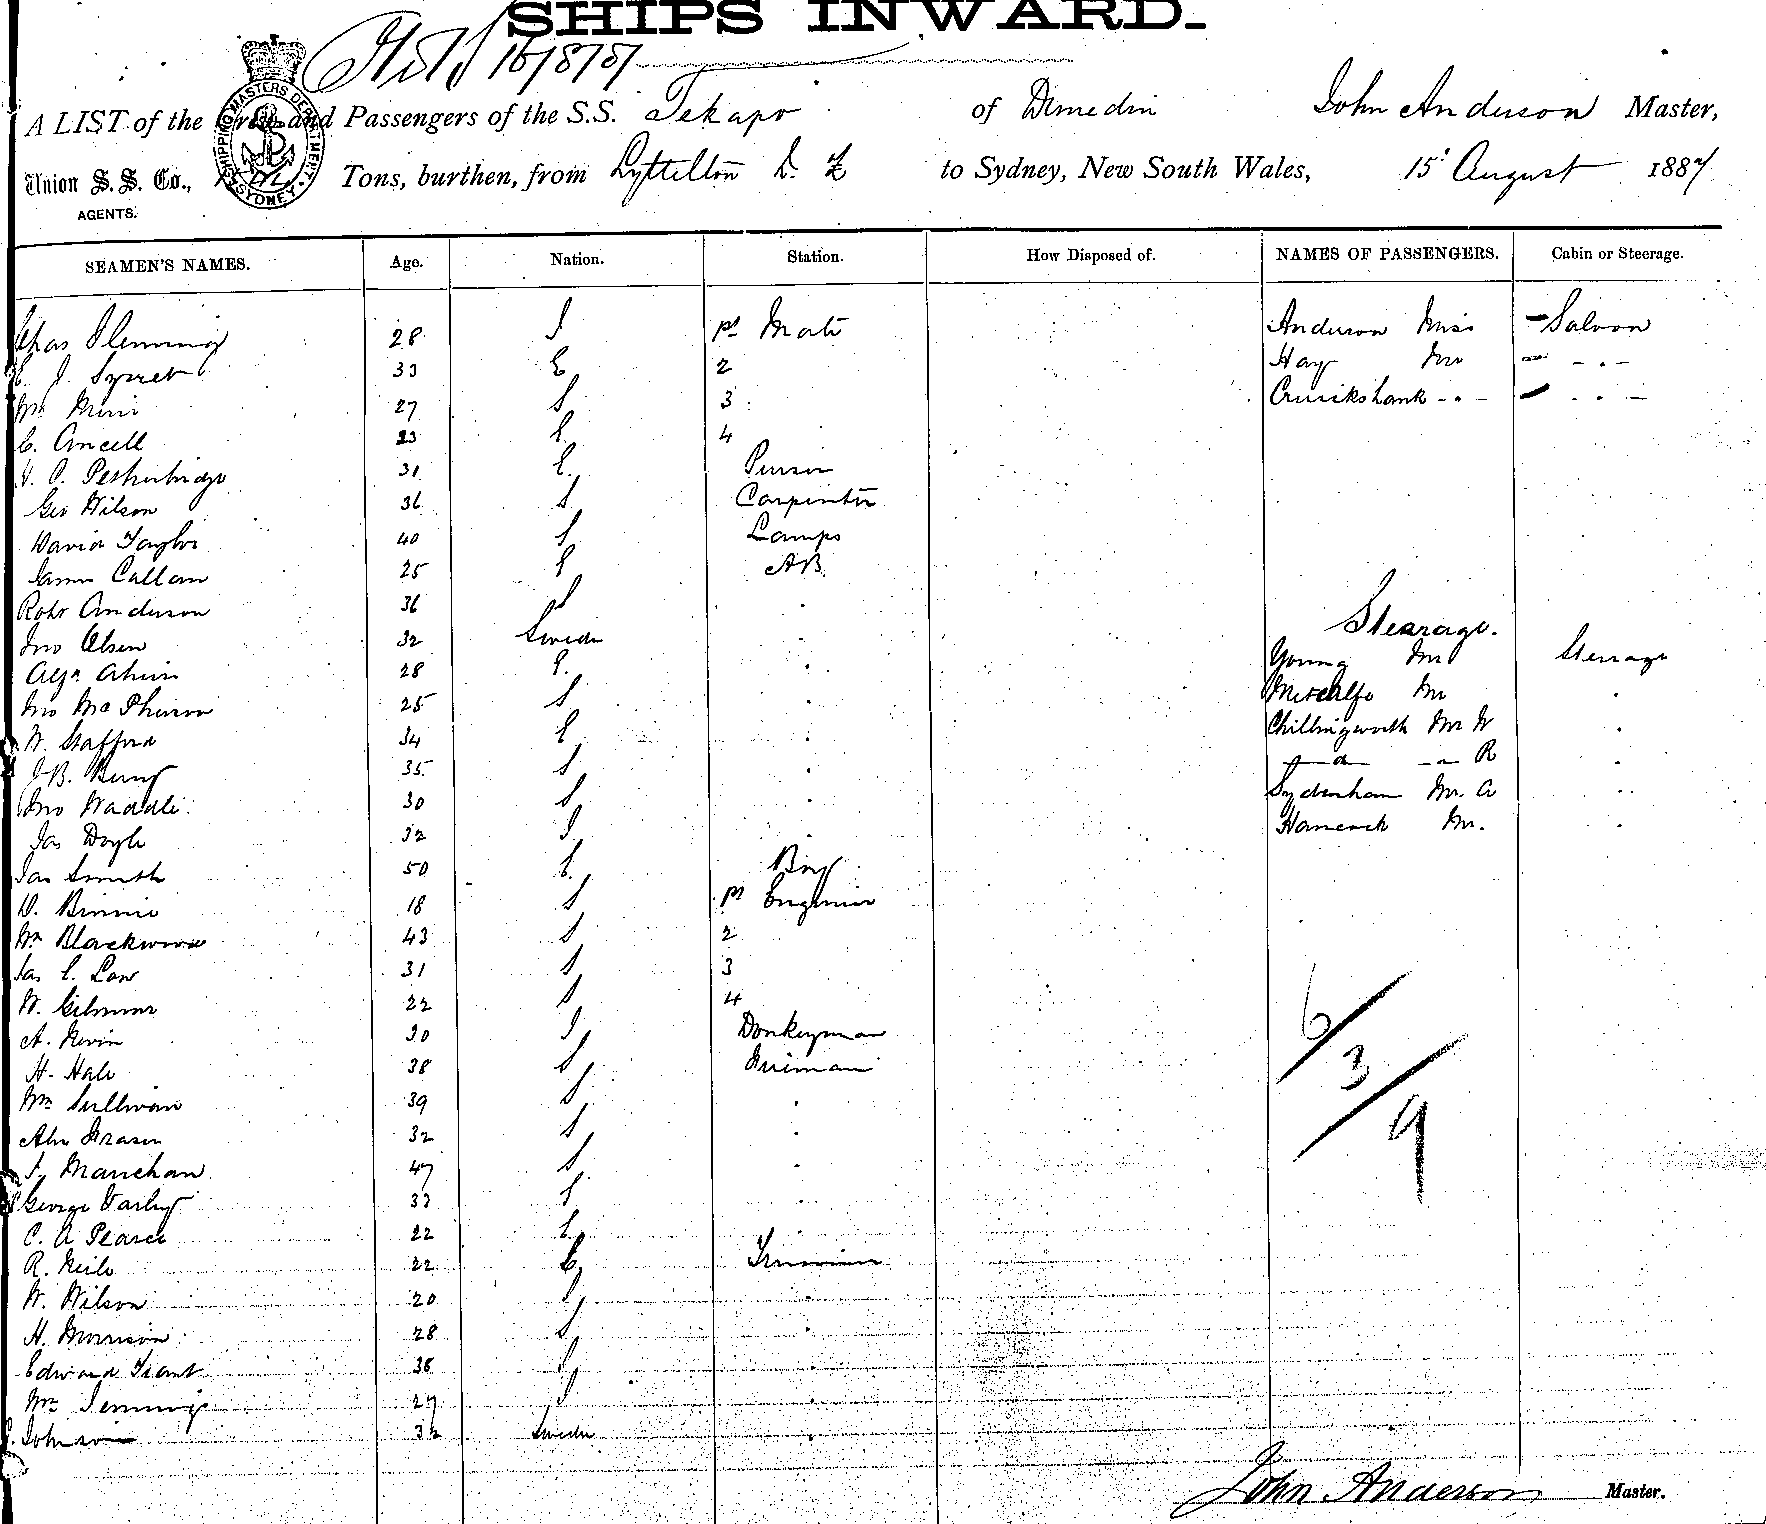 SHIPS INWARD.
16/8/87
A LIST of the Crew and Passengers of the S.S. Tekapo of Dunedin John Anderson Master,
Union S. S. Co., Tons, burthen, from Lyttelton N. Z to Sydney, New South Wales, 15 August 1887
AGENTS.
SHIPPING MASTERS DEPARTMENT SYDNEY
SEAMEN'S NAMES. Age. Nation. Station. How Disposed of. NAMES OF PASSENGERS. Cabin or Steerage.
Chas Flemming 28 1st Mate Anderson Miss Saloon
33 E 2 Hay Mr
Wm Muir 27 S 3 Cruikshank
C. Ancell 23 E 4
Petherbridge 31 E Purser
Geo Wilson 36 S Carpenter
David Taylor 40 S Lamps
James Callam 25 E AB.
Robt Anderson 36 S
Jno Olsen 32 Sweden Stearage.
28 E. Young Mr Steerage
Jno McPherson 25 S Metcalfe Mr
W. Stafford 34 E Chillingworth Mr W
J B. 35 S do R
Jno Waddle 30 S Sydenham Mr. A
Jas Doyle 32 I Hancock Mr.
Jas Smith 50 E Boy
D. Binnie 18 S 1st Engineer
Wm Blackwood 43 S 2
Jas C. Law 31 S 3
W. Gilmour 22 S 4
A. Nevin 30 I Donkeyman
H. Hale 38 S Fireman
Wm Sullivan 39 S
Alex Fraser 32 S
Manehan 47 S
George 33
C. A Pearce 22 E
R. Neile 22 E Trimmer
W. Wilson 20
H. Morrison 28 S
Edward Grant 36
Wm Jennings 27
Johnson 32 Sweden
6/
3/
9
John Anderson Master.